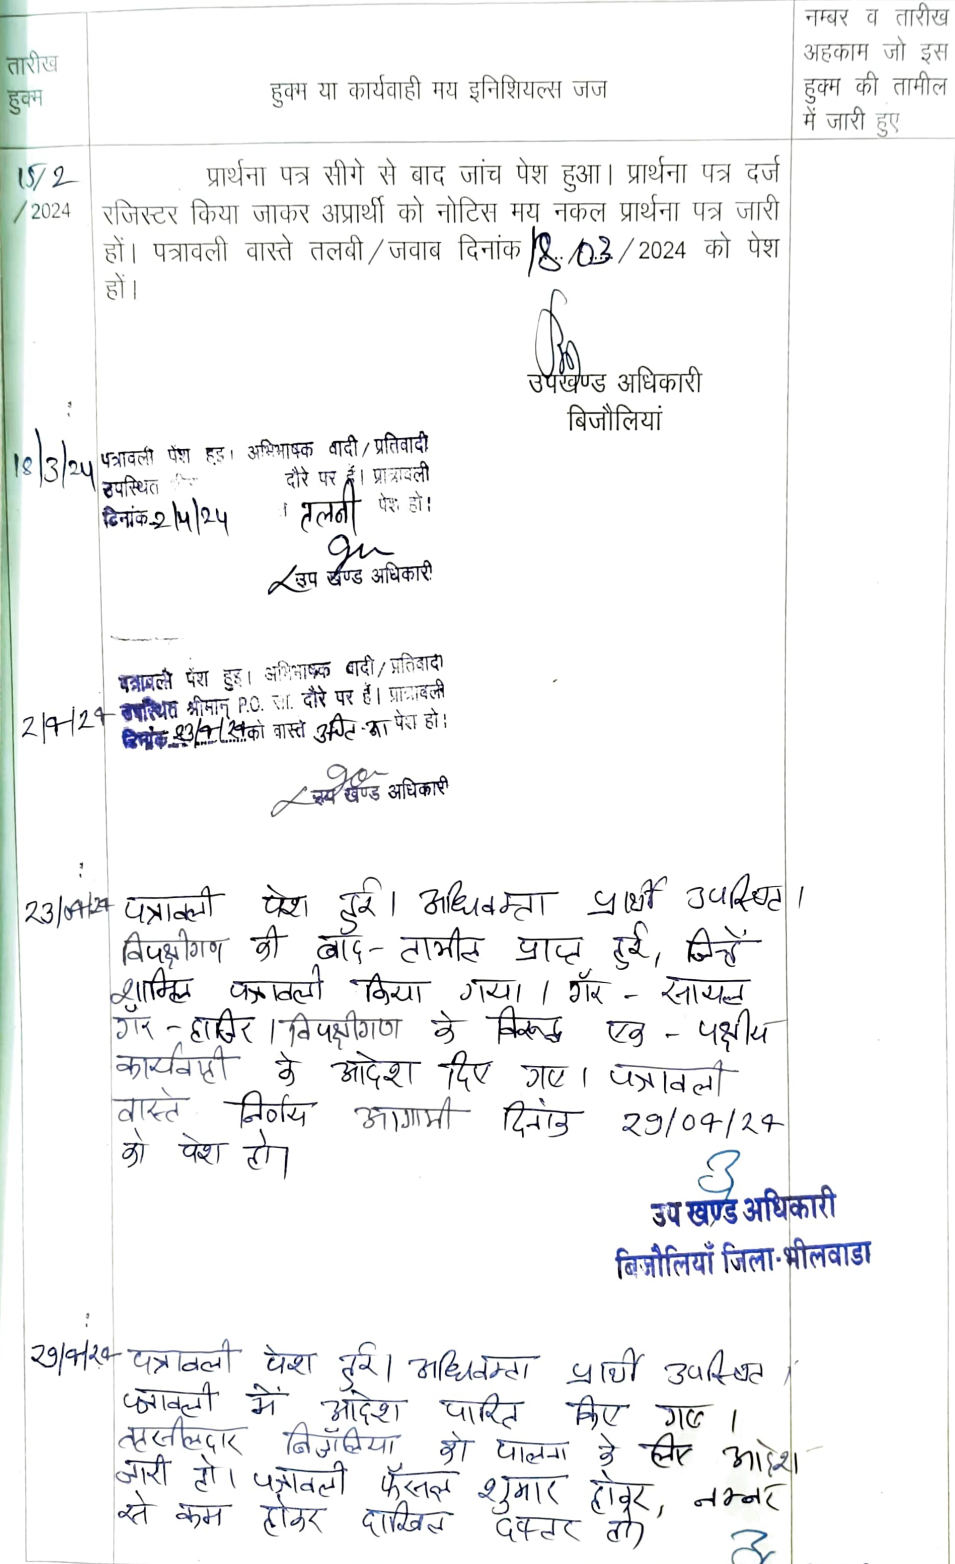 नम्बर व तारीख
अहकाम जो इस
हुक्म की तामील
में जारी हुए
तारीख
हुक्म
हुक्म या कार्यवाही मय इनिशियल्स जज
15/2
/2024
प्रार्थना पत्र सीगे से बाद जांच पेश हुआ। प्रार्थना पत्र दर्ज
रजिस्टर किया जाकर अप्रार्थी को नोटिस मय नकल प्रार्थना पत्र जारी
हों। पत्रावली वास्ते तलबी/जवाब दिनांक 18/03/2024 को पेश
हों।
उपखण्ड अधिकारी
बिजौलियां
18/3/24 पत्रावली पेश हुइ। अभिभाषक वादी/प्रतिवादी
उपस्थित दौरे पर हैं। प्रात्रावली
दिनांक 2/4/24 पेश हो।
उप खण्ड अधिकारी
पत्रावली पेश हुइ। अभिभाषक वादी/प्रतिवादी
2/4/24 उपस्थित श्रीमान् P.O. सा. दौरे पर हैं। प्रात्रावली
दिनांक 23/4/24 को वास्ते पेश हो।
उप खण्ड अधिकारी
23/04/24 पत्रावली पेश हुई। अधिवक्ता प्रार्थी उपस्थित।
विपक्षीगण की बाद-तामील प्राप्त हुई, जिन्हें
शामिल पत्रावली किया गया। गैर-सायल
गैर-हाजिर। विपक्षीगण के विरूद्ध एक-पक्षीय
कार्यवाही के आदेश दिए गए। पत्रावली
वास्ते निर्णय आगामी दिनांक 29/04/24
को पेश हो।
उप खण्ड अधिकारी
बिजौलियाँ जिला-भीलवाडा
29/4/24 पत्रावली पेश हुई। अधिवक्ता प्रार्थी उपस्थित।
पत्रावली में आदेश पारित किए गए।
तहसीलदार बिजौलिया को पालना के लिए आदेश
जारी हो। पत्रावली फैसल शुमार होकर, नम्बर
से कम होकर दाखिल दफ्तर हो।